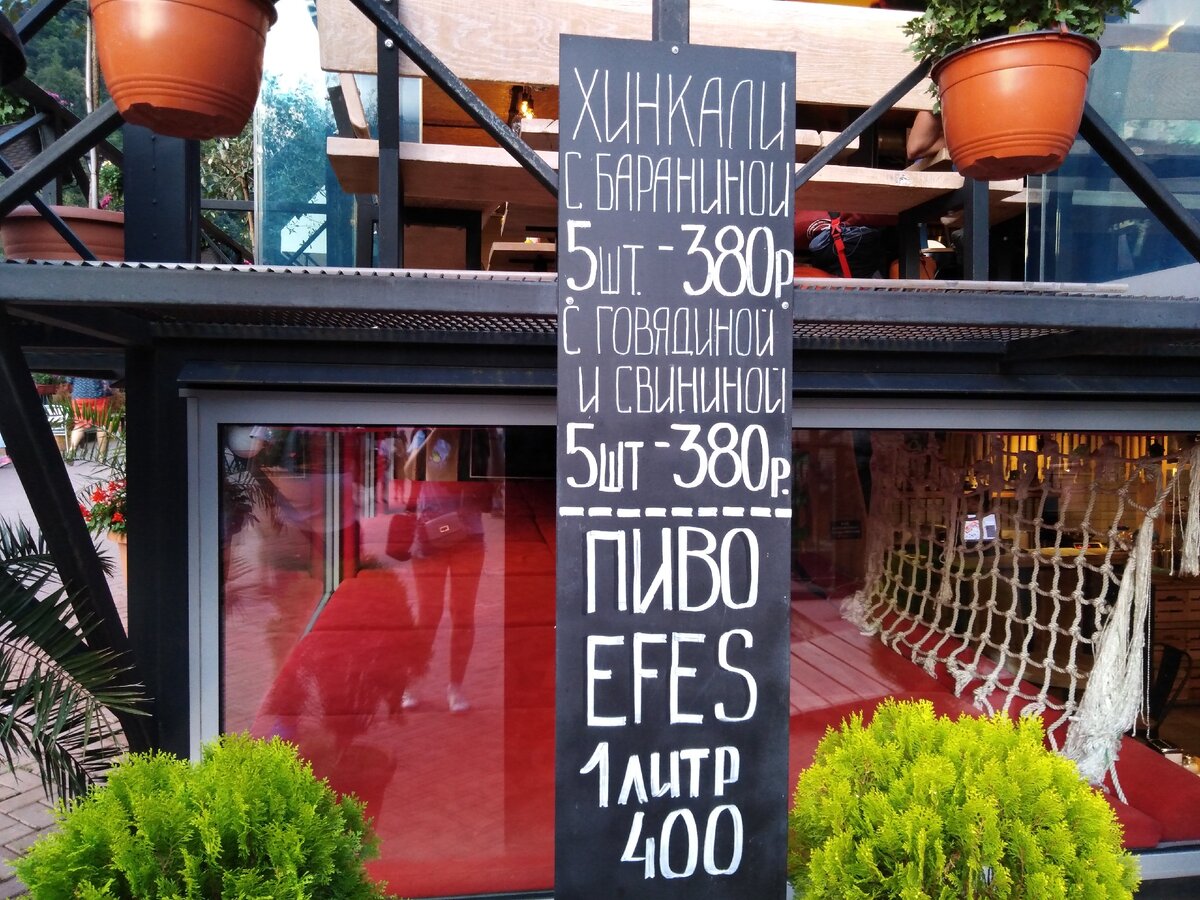 ХИНКАЛИ
С БАРАНИНОЙ
5шт. - 380р.
С ГОВЯДИНОЙ
И СВИНИНОЙ
5шт - 380р.
ПИВО
EFES
1 литр
400